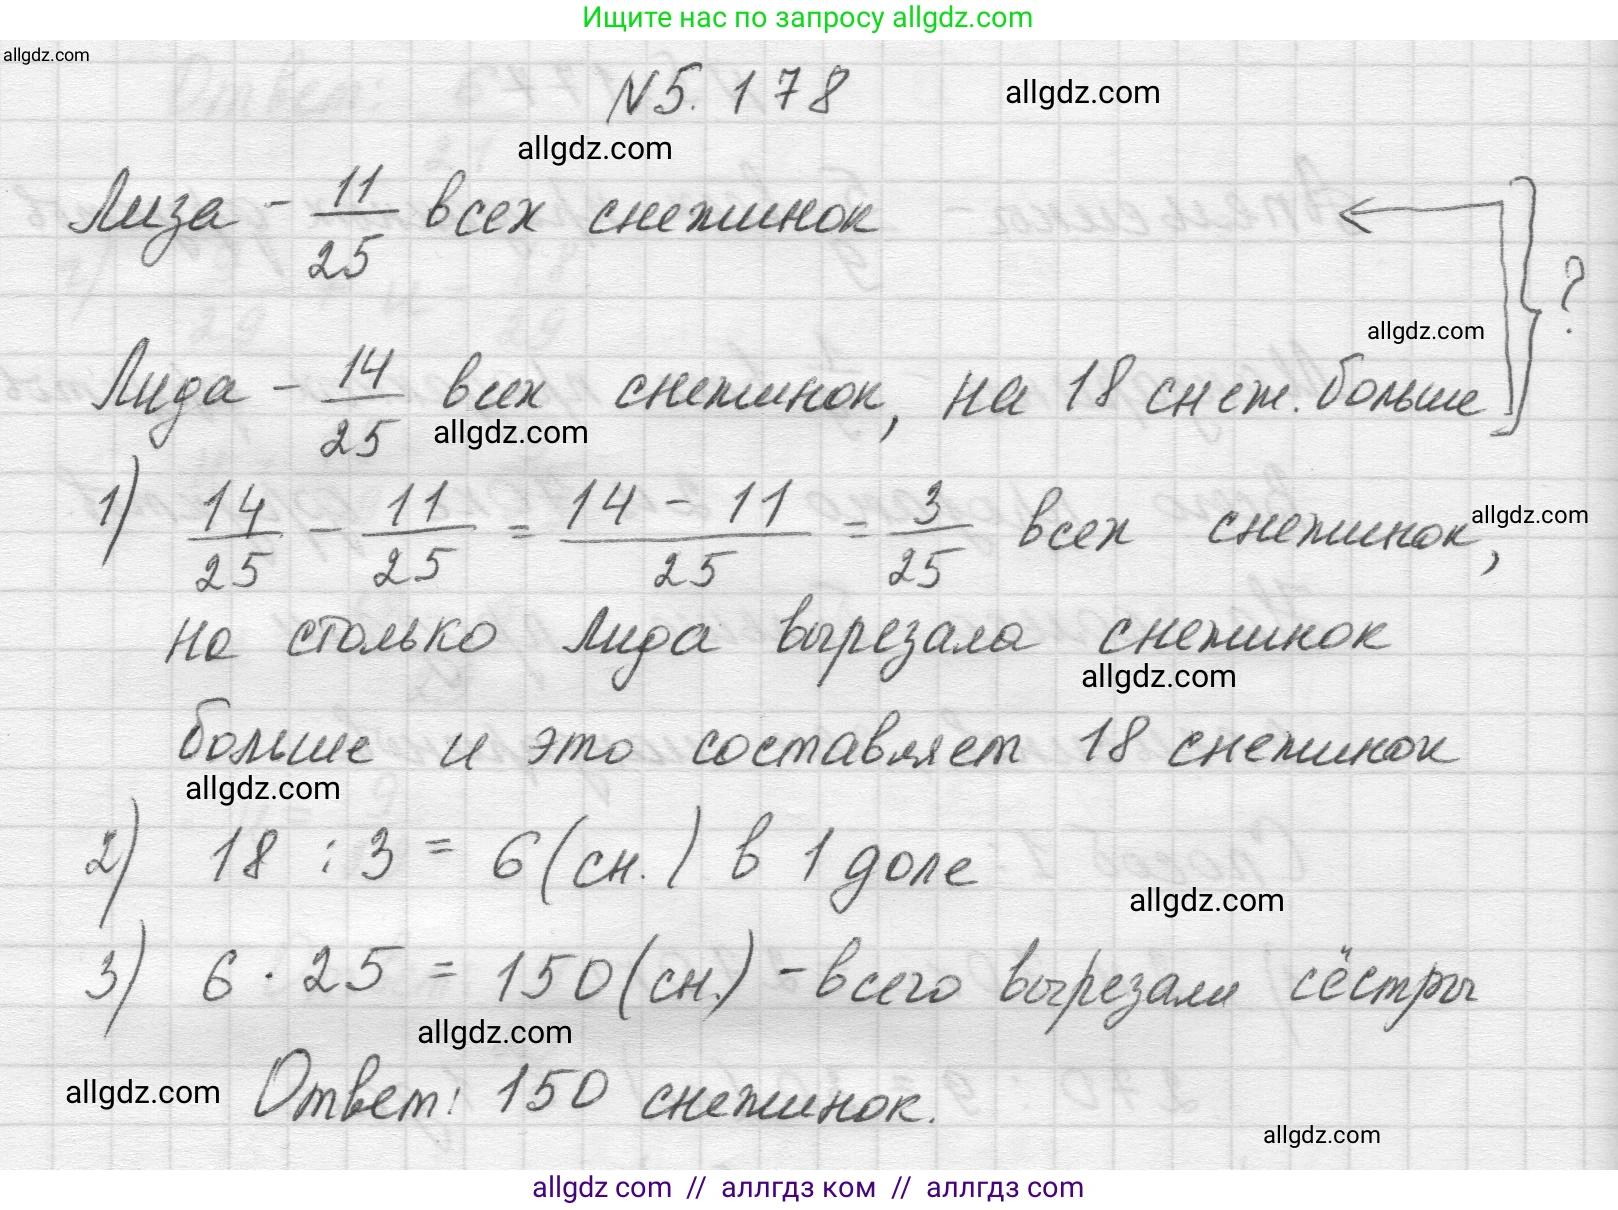 Ищите нас по запросу allgdz.com
allgdz.com
N5.178
allgdz.com
allgdz.com
Лиза - 11/25 всех снежинок
?
allgdz.com
Лида - 14/25 всех снежинок, на 18 снеж. больше
allgdz.com
1) 14/25 - 11/25 = (14 - 11)/25 = 3/25 всех снежинок,
allgdz.com
на столько Лида вырезала снежинок
allgdz.com
больше и это составляет 18 снежинок
allgdz.com
2) 18 : 3 = 6 (сн.) в 1 доле
allgdz.com
3) 6 · 25 = 150 (сн.) - всего вырезали сёстры
allgdz.com
allgdz.com
Ответ: 150 снежинок.
allgdz.com
allgdz com // аллгдз ком // аллгдз com